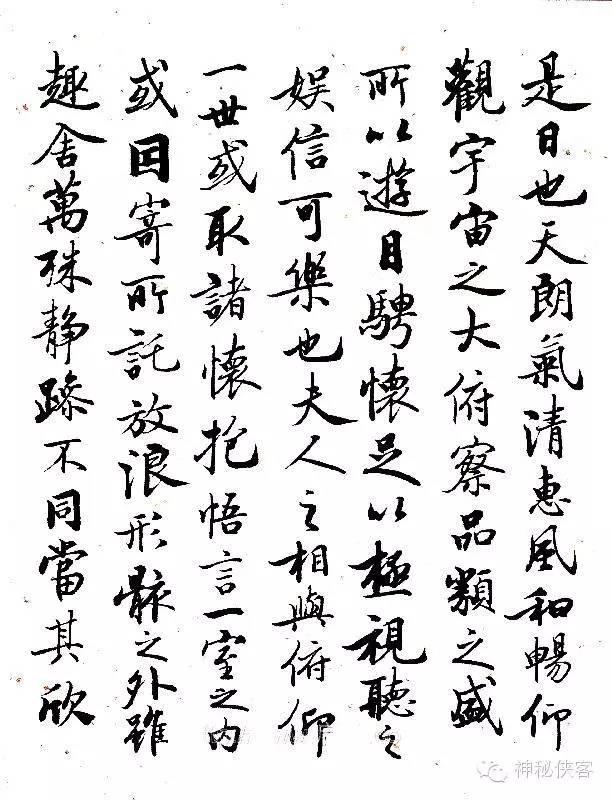 是日也天朗氣清惠風和暢仰
觀宇宙之大俯察品類之盛
所以遊目騁懷足以極視聽之
娛信可樂也夫人之相與俯仰
一世或取諸懷抱悟言一室之内
或因寄所託放浪形骸之外雖
趣舍萬殊静躁不同當其欣
神秘侠客